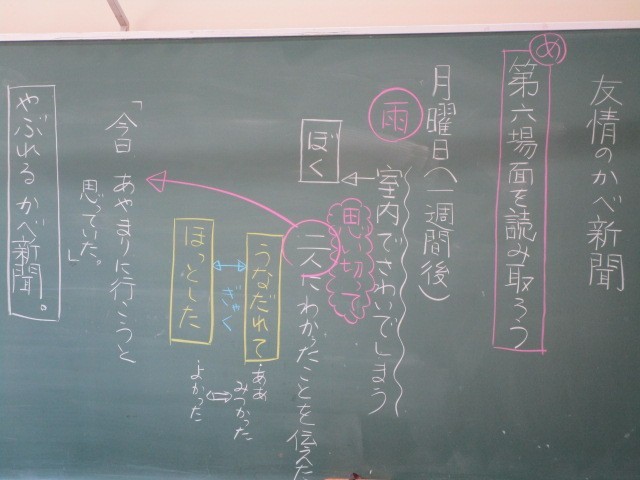 友情のかべ新聞
め
第六場面を読み取ろう
月曜日(一週間後)
雨
室内でさわいでしまう
ぼく
思い切って
二人にわかったことを伝えた
うなだれて
・ああ
みつかった
ぎゃく
ほっとした
・よかった
「今日 あやまりに行こうと
思っていた。」
やぶれる かべ新聞。